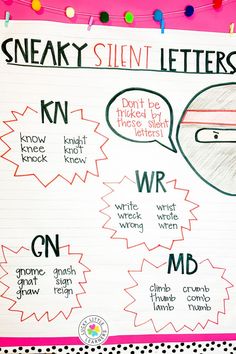 SNEAKY SILENT LETTERS
Don't be
tricked by
these silent
letters!
KN
know knight
knee knot
knock knew
WR
write wrist
wreck wrote
wrong wren
GN
gnome gnash
gnat sign
gnaw reign
MB
climb crumb
thumb comb
lamb numb
LUCKY LITTLE
LEARNERS